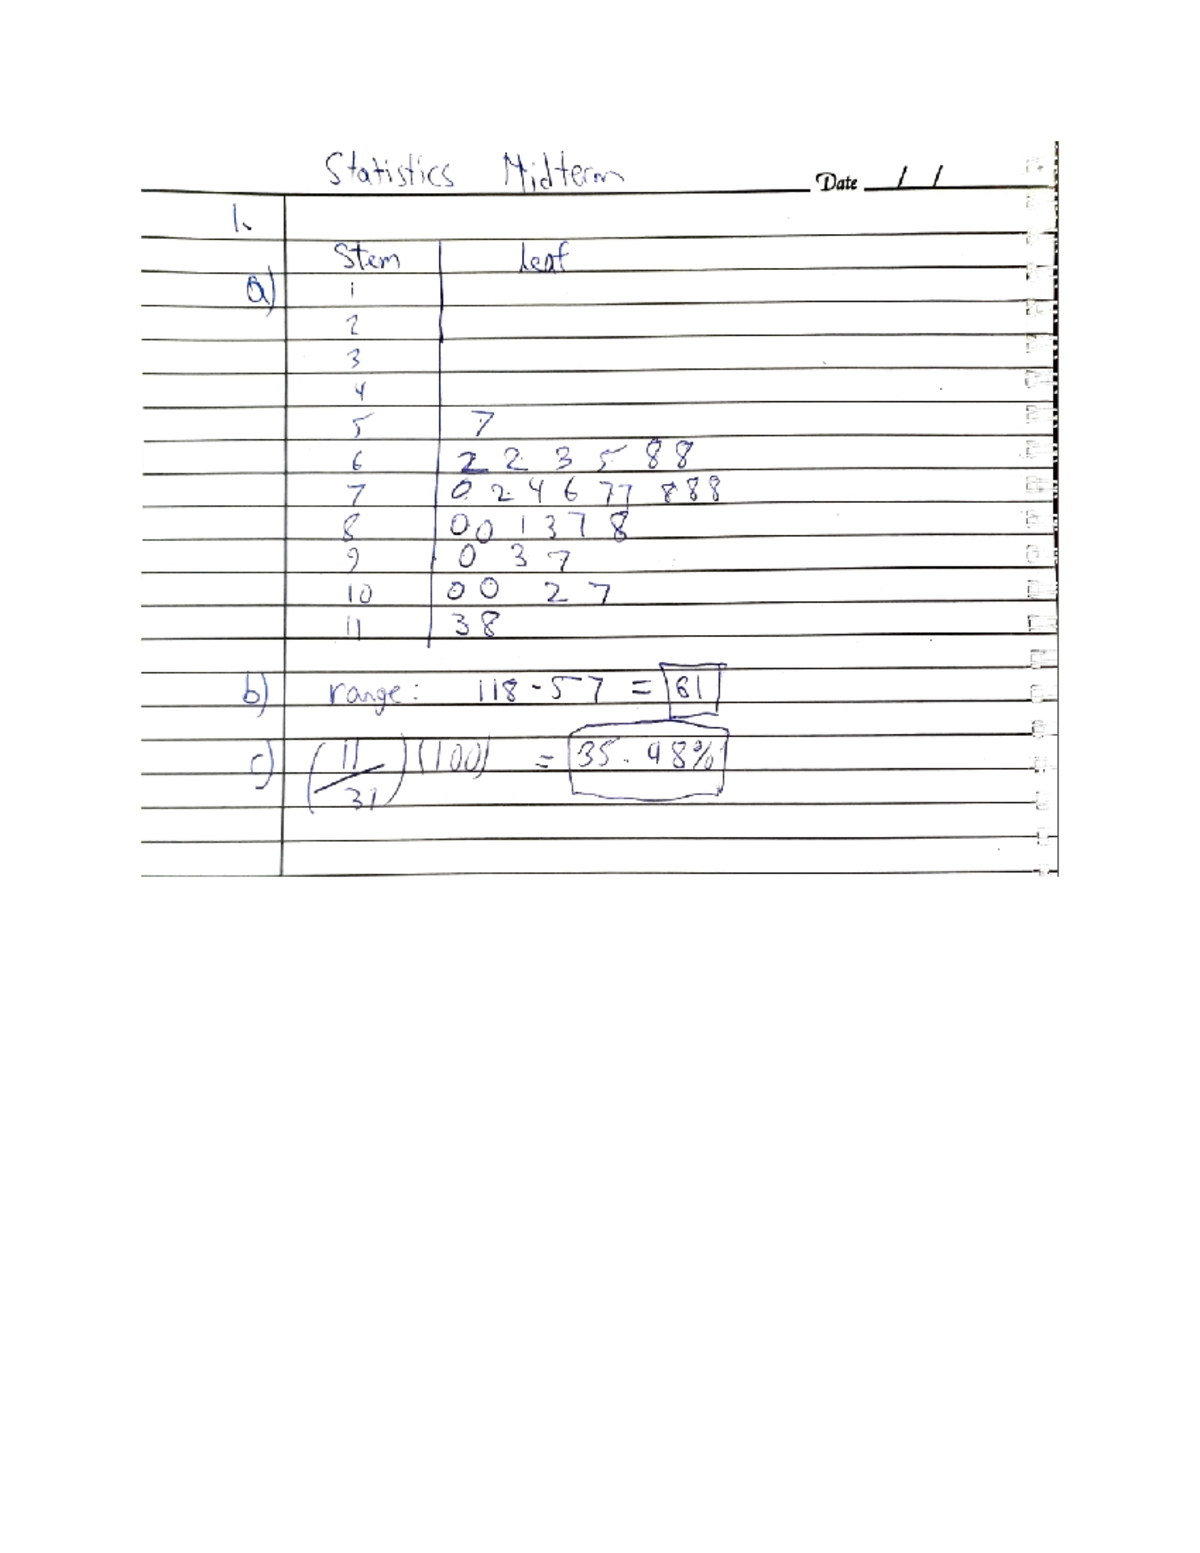 Statistics Midterm
Date / /
1.
Stem leaf
a) 1
2
3
4
5 7
6 2 2 3 5 8 8
7 0 2 4 6 7 7 8 8 8
8 0 0 1 3 7 8
9 0 3 7
10 0 0 2 7
11 3 8
b) range: 118 - 57 = 61
c) (11/31)(100) = 35.48%